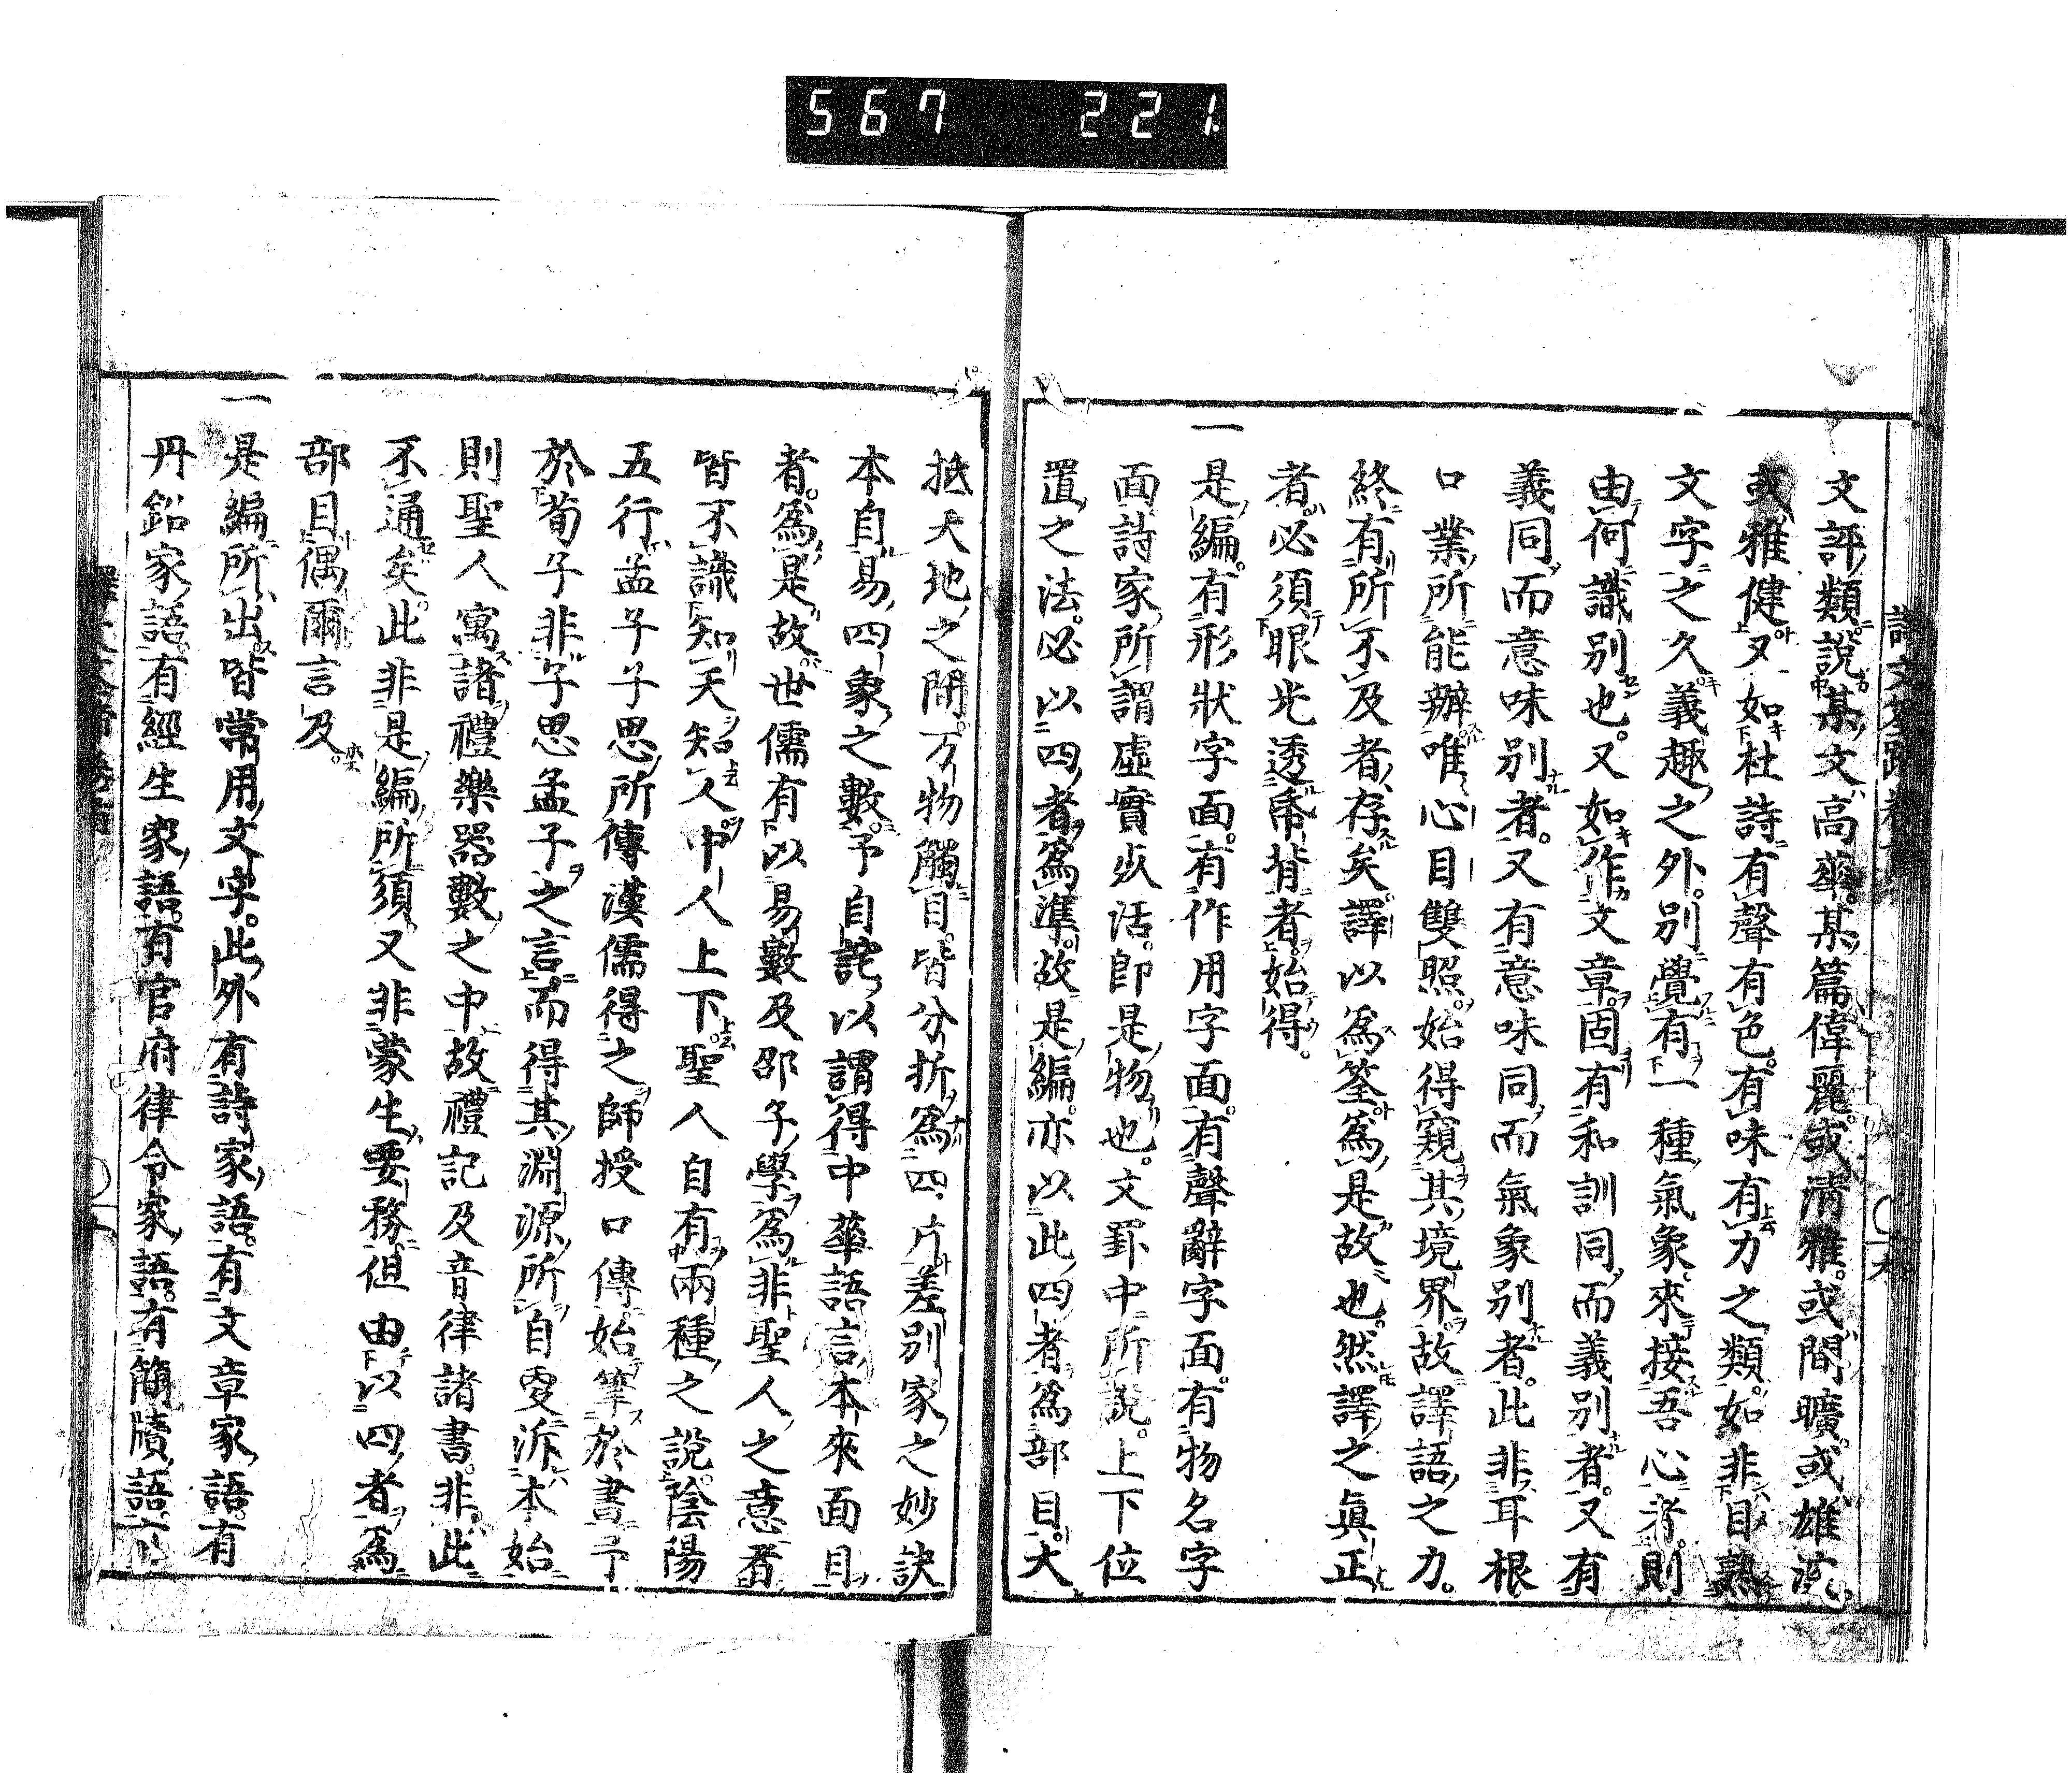 567 221.
文評類說某文高華某篇偉麗或清雅或間曠或雄渾
或雅健又如杜詩有聲有色有味有力之類如非目熟
文字之久義趣之外別覺有一種氣象來接吾心者則
由何識別也又如作文章固有和訓同而義別者又有
義同而意味別者又有意味同而氣象別者此非耳根
口業所能辨唯心目雙照始得窺其境界故譯語之力
終有所不及者存矣譯以為筌為是故也然譯之真正
者必須眼光透帋背者始得
一是編有形狀字面有作用字面有聲辭字面有物名字
面詩家所謂虛實死活即是物也文罫中所說上下位
置之法必以四者為準故是編亦以此四者為部目大
抵天地之間万物觸目皆分折為四片差別家之妙訣
本自易四象之數予自詫以謂得中華語言本來面目
者為是故世儒有以易數及邵子學為非聖人之意者
皆不識知天知人中人上下聖人自有兩種之說陰陽
五行孟子子思所傳漢儒得之師授口傳始筆於書予
於荀子非子思孟子之言而得其淵源所自爰泝本始
則聖人寓諸禮樂器數之中故禮記及音律諸書非此
不通矣此非是編所須又非蒙生要務但由以四者為
部目偶爾言及
一是編所出皆常用文字此外有詩家語有文章家語有
丹鉛家語有經生家語有官府律令家語有簡牘語